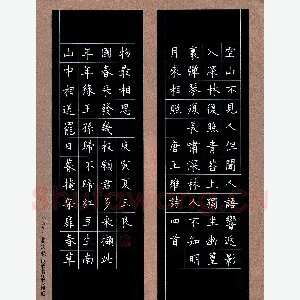 空山不見人但聞人語響返影
入深林復照青苔上獨坐幽篁
裏彈琴復長嘯深林人不知明
月來相照 唐王維詩四首
山中相送罷日暮掩柴扉春草
年年綠王孫歸不歸紅豆生南
國春來發幾枝願君多采擷此
物最相思 庚寅夏